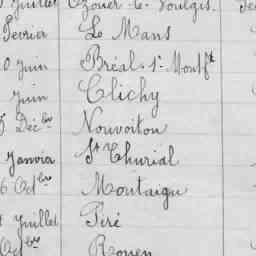 Juillet Ozouer-le-Voulgis.
Fevrier Le Mans
0 Juin Bréal s. Montft
Juin Clichy
Décbre Nouvoitou
Janvier St Thurial
6 Octbre Montaigu
Juillet Piré
Octbre Rouen